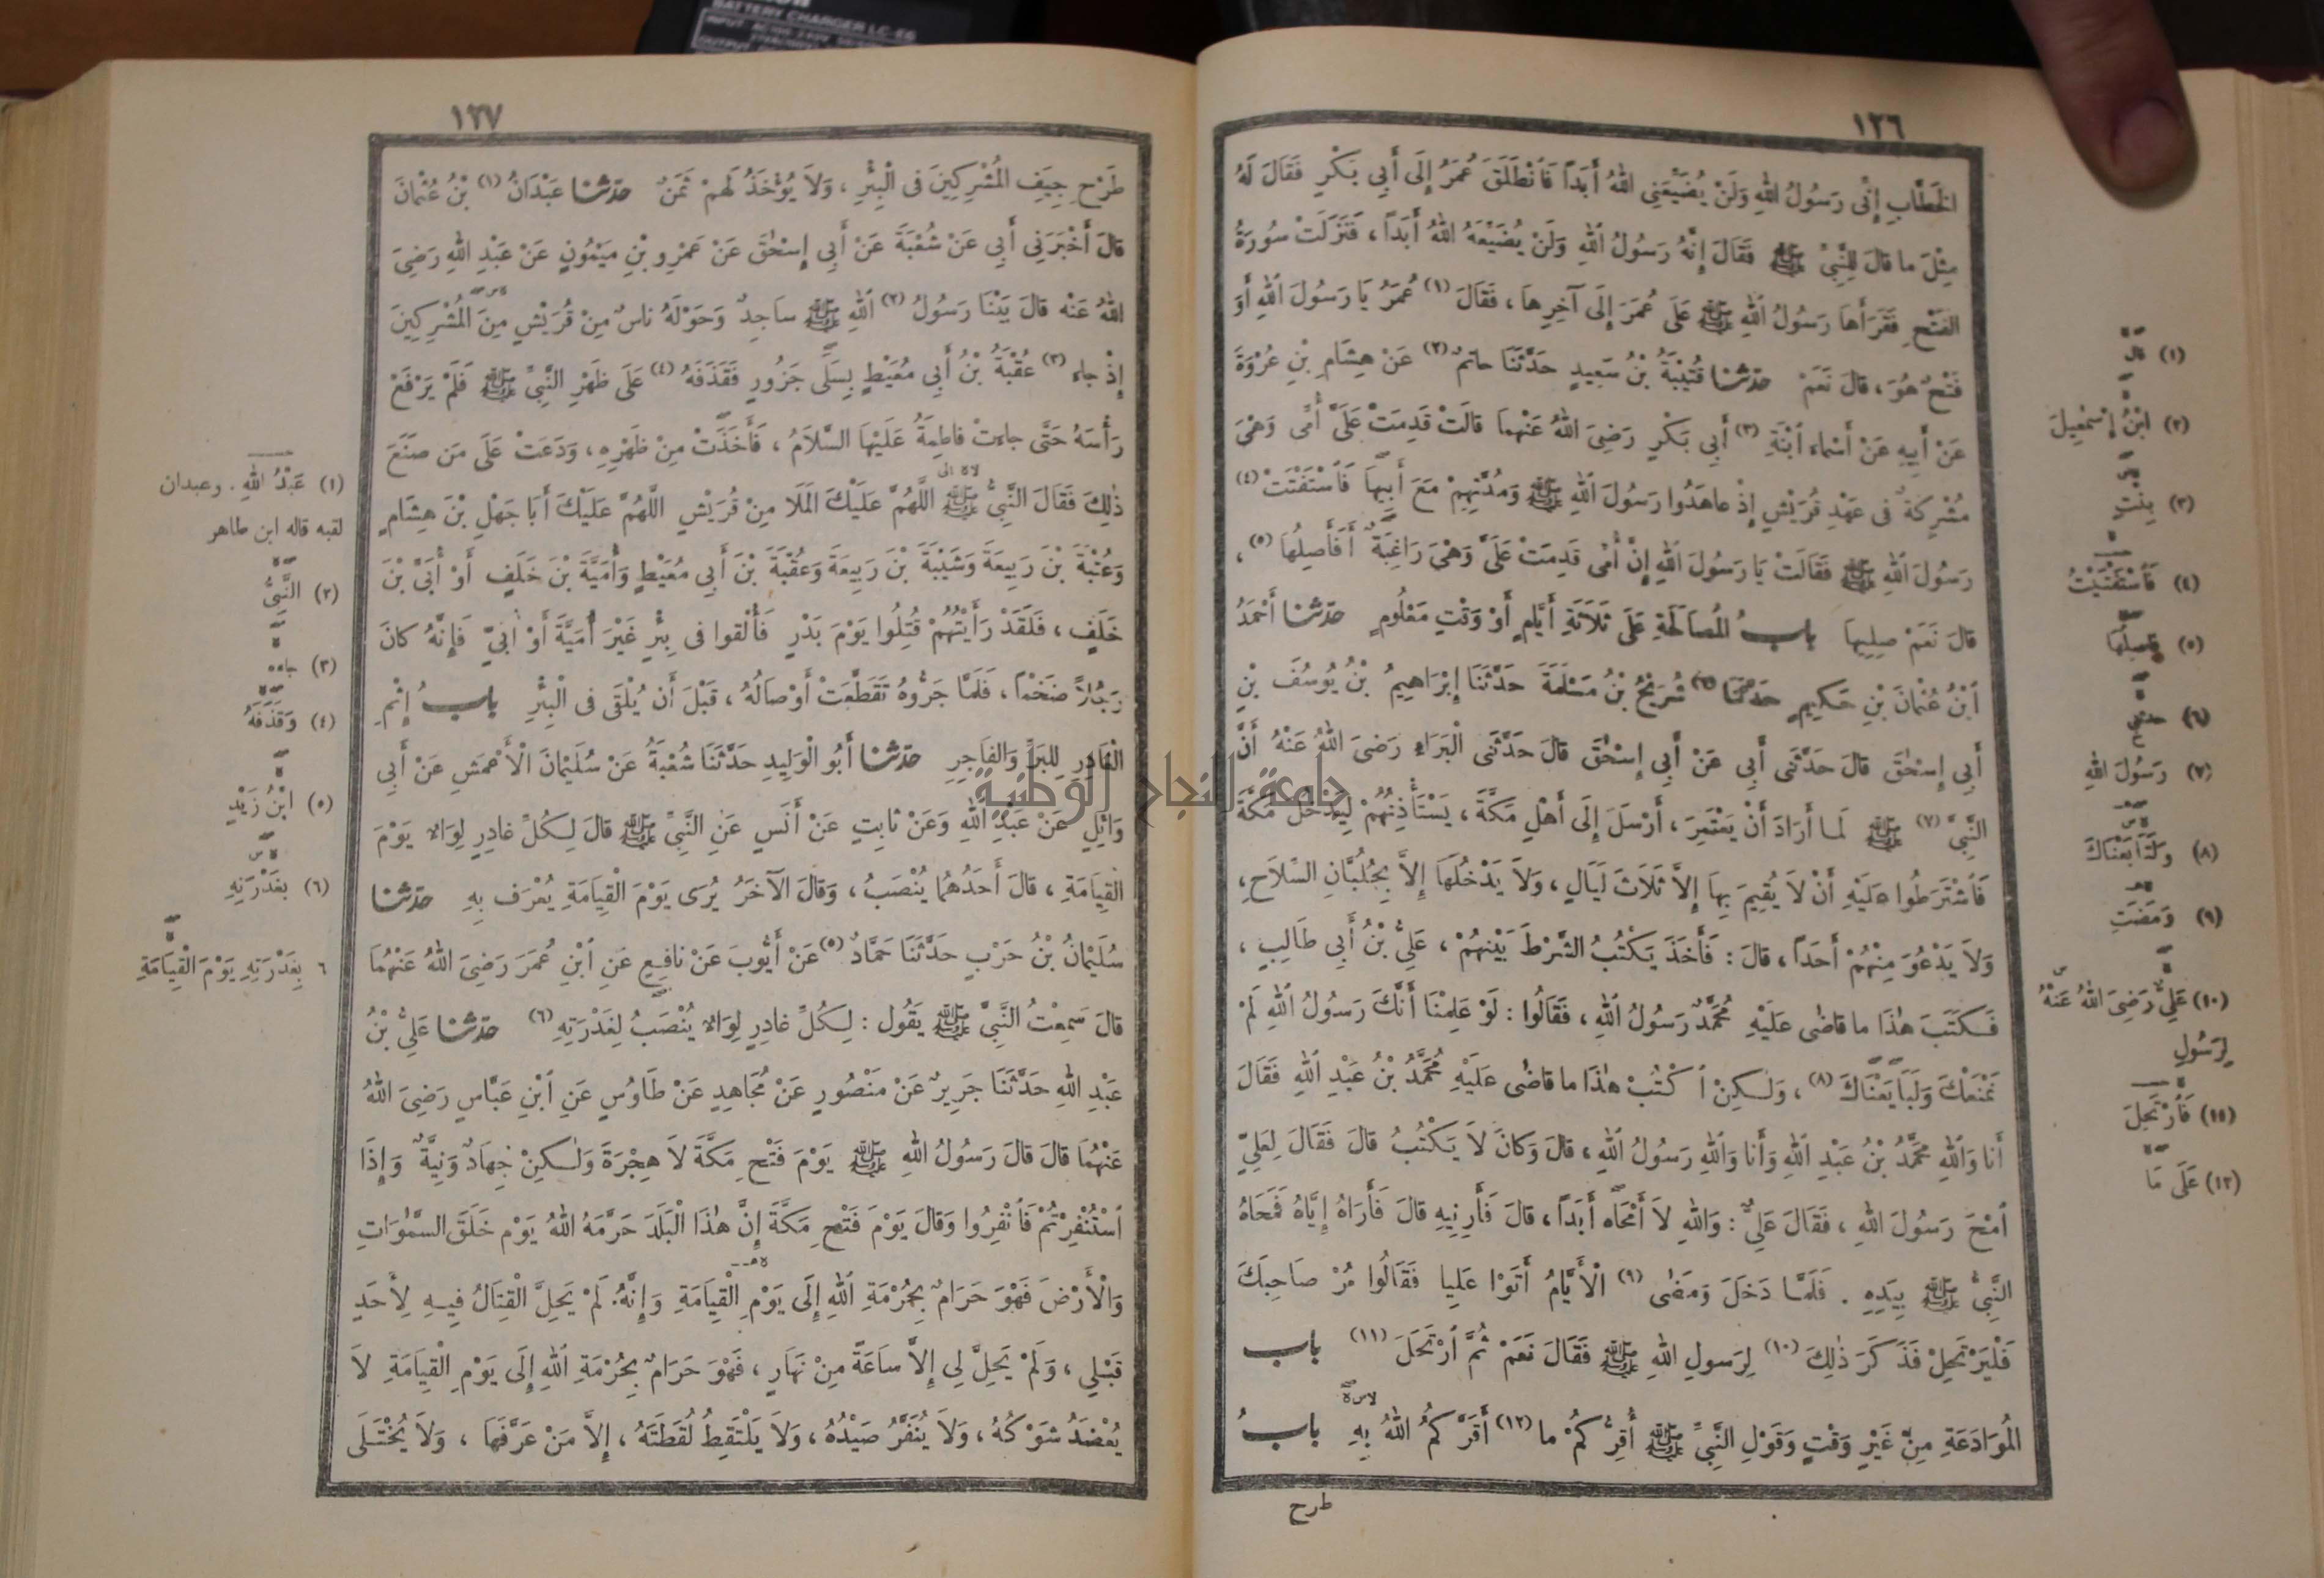 ١٢٦
الخَطَّابِ إِنِّى رَسُولُ اللهِ وَلَنْ يُضَيِّعَنِى اللهُ أَبَدًا فَانْطَلَقَ عُمَرُ إِلَى أَبِى بَكْرٍ فَقَالَ لَهُ
مِثْلَ ما قالَ لِلنَّبِىِّ ﷺ فَقَالَ إِنَّهُ رَسُولُ اللهِ وَلَنْ يُضَيِّعَهُ اللهُ أَبَدًا ، فَنَزَلَتْ سُورَةُ
الفَتْحِ فَقَرَأَهَا رَسُولُ اللهِ ﷺ عَلَى عُمَرَ إِلَى آخِرِهَا ، فَقَالَ (١) عُمَرُ يَا رَسُولَ اللهِ أَوَ
فَتْحٌ هُوَ ، قالَ نَعَمْ حدّثنا قُتَيْبَةُ بْنُ سَعِيدٍ حَدَّثَنَا حاتمٌ (٢) عَنْ هِشَامِ بْنِ عُرْوَةَ
عَنْ أَبِيهِ عَنْ أَسْماءَ ابْنَةِ (٣) أَبِى بَكْرٍ رَضِىَ اللهُ عَنْهُما قالَتْ قَدِمَتْ عَلَىَّ أُمِّى وَهْىَ
مُشْرِكَةٌ فى عَهْدِ قُرَيْشٍ إِذْ عاهَدُوا رَسُولَ اللهِ ﷺ وَمُدَّتِهِمْ مَعَ أَبِيهَا فَاسْتَفْتَتْ (٤)
رَسُولَ اللهِ ﷺ فَقَالَتْ يَا رَسُولَ اللهِ إِنَّ أُمِّى قَدِمَتْ عَلَىَّ وَهْىَ رَاغِبَةٌ أَفَأَصِلُهَا (٥) ،
قالَ نَعَمْ صِلِيهَا باب المُصَالَحَةِ عَلَى ثَلَاثَةِ أَيَّامٍ أَوْ وَقْتٍ مَعْلُومٍ حدّثنا أَحْمَدُ
ابْنُ عُثْمانَ بْنِ حَكِيمٍ حَدَّثَنَا (٦) شُرَيْحُ بْنُ مَسْلَمَةَ حَدَّثَنَا إِبْرَاهِيمُ بْنُ يُوسُفَ بْنِ
أَبِى إِسْحٰقَ قالَ حَدَّثَنِى أَبِى عَنْ أَبِى إِسْحٰقَ قالَ حَدَّثَنِى الْبَرَاءِ رَضِىَ اللهُ عَنْهُ أَنَّ
النَّبِىَّ (٧) ﷺ لَمَّا أَرَادَ أَنْ يَعْتَمِرَ ، أَرْسَلَ إِلَى أَهْلِ مَكَّةَ ، يَسْتَأْذِنُهُمْ لِيَدْخُلَ مَكَّةَ
فَاشْتَرَطُوا عَلَيْهِ أَنْ لاَ يُقِيمَ بِهَا إِلاَّ ثَلَاثَ لَيَالٍ ، وَلاَ يَدْخُلَهَا إِلاَّ بِجُلُبَّانِ السِّلاَحِ ،
وَلاَ يَدْعُوَ مِنْهُمْ أَحَدًا ، قالَ : فَأَخَذَ يَكْتُبُ الشَّرْطَ بَيْنَهُمْ ، عَلِىُّ بْنُ أَبِى طَالِبٍ ،
فَكَتَبَ هٰذَا ما قاضٰى عَلَيْهِ مُحَمَّدٌ رَسُولُ اللهِ ، فَقَالُوا : لَوْ عَلِمْنَا أَنَّكَ رَسُولُ اللهِ لَمْ
نَمْنَعْكَ وَلَبَايَعْنَاكَ (٨) ، وَلٰكِنْ اكْتُبْ هٰذَا ما قاضٰى عَلَيْهِ مُحَمَّدُ بْنُ عَبْدِ اللهِ فَقَالَ
أَنا وَاللهِ مُحَمَّدُ بْنُ عَبْدِ اللهِ وَأَنا وَاللهِ رَسُولُ اللهِ ، قالَ وَكانَ لاَ يَكْتُبُ قالَ فَقَالَ لِعَلِىٍّ
امْحَ رَسُولَ اللهِ ، فَقَالَ عَلِىٌّ : وَاللهِ لاَ أَمْحَاه أَبَدًا ، قالَ فَأَرِنِيهِ قالَ فَأَرَاهُ إِيَّاهُ فَمَحَاهُ
النَّبِىُّ ﷺ بِيَدِهِ . فَلَمَّا دَخَلَ وَمَضٰى (٩) الْأَيَّامُ أَتَوْا عَلِيا فَقَالُوا مُرْ صاحِبَكَ
فَلْيَرْتَحِلْ فَذَكَرَ ذٰلِكَ (١٠) لِرَسولِ اللهِ ﷺ فَقَالَ نَعَمْ ثُمَّ ارْتَحَلَ (١١) باب
المُوَادَعَةِ مِنْ غَيْرِ وَقْتٍ وَقَوْلِ النَّبِىِّ ﷺ أُقِرُّكُمْ ما (١٢) أَقَرَّكُمُ اللهُ بِهِ بابُ
طرح
(١) قال
(٢) ابْنُ إِسْمٰعِيلَ
(٣) بِنْتِ
(٤) فَاسْتَفْتَيْتُ
(٥) فَأَصِلُهَا
(٦) حدثنى
(٧) رَسُولَ اللهِ
(٨) وَلَتَابَعْنَاكَ
(٩) وَمَضَتِ
(١٠) عَلِىٌّ رَضِىَ اللهُ عَنْهُ
لِرَسُولِ
(١١) فَارْتَحَلَ
(١٢) عَلَى مَا
١٢٧
طَرْحِ جِيَفِ المُشْرِكِينَ فى الْبِئْرِ ، وَلاَ يُؤْخَذُ لَهُمْ ثَمَنٌ حدّثنا عَبْدَانُ (١) بْنُ عُثْمانَ
قالَ أَخْبَرَنِى أَبِى عَنْ شُعْبَةَ عَنْ أَبِى إِسْحٰقَ عَنْ عَمْرِو بْنِ مَيْمُونٍ عَنْ عَبْدِ اللهِ رَضِىَ
اللهُ عَنْه قالَ بَيْنَا رَسُولُ (٢) اللهِ ﷺ ساجِدٌ وَحَوْلَهُ ناسٌ مِنْ قُرَيْشٍ مِنَ الْمُشْرِكِينَ
إِذْ جاء (٣) عُقْبَةُ بْنُ أَبِى مُعَيْطٍ بِسَلَى جَزُورٍ فَقَذَفَهُ (٤) عَلَى ظَهْرِ النَّبِىِّ ﷺ فَلَمْ يَرْفَعْ
رَأْسَهُ حَتَّى جاءتْ فاطِمَةُ عَلَيْهَا السَّلاَمُ ، فَأَخَذَتْ مِنْ ظَهْرِهِ ، وَدَعَتْ عَلَى مَن صَنَعَ
ذٰلِكَ فَقَالَ النَّبِىُّ ﷺ اللَّهُمَّ عَلَيْكَ المَلَا مِنْ قُرَيْشٍ اللَّهُمَّ عَلَيْكَ أَبَا جَهْلِ بْنَ هِشَامٍ
وَعُتْبَةَ بْنَ رَبِيعَةَ وَشَيْبَةَ بْنَ رَبِيعَةَ وَعُقْبَةَ بْنَ أَبِى مُعَيْطٍ وَأُمَيَّةَ بْنَ خَلَفٍ أَوْ أُبَىَّ بْنَ
خَلَفٍ ، فَلَقَدْ رَأَيْتُهُمْ قُتِلُوا يَوْمَ بَدْرٍ فَأُلْقوا فى بِئْرٍ غَيْرَ أُمَيَّةَ أَوْ أُبَىٍّ فَإِنَّهُ كانَ
رَجُلاً ضَخْمًا ، فَلَمَّا جَرُّوهُ تَقَطَّعَتْ أَوْصالُهُ ، قَبْلَ أَن يُلْقَى فى الْبِئْرِ بابُ إِثْمِ
الْغَادِرِ لِلبَرِّ وَالفاجِرِ حدّثنا أَبُو الْوَلِيدِ حَدَّثَنَا شُعْبَةُ عَنْ سُلَيْمانَ الْأَعْمَشِ عَنْ أَبِى
وَائِلٍ عَنْ عَبْدِ اللهِ وَعَنْ ثابِتٍ عَنْ أَنَسٍ عَنِ النَّبِىِّ ﷺ قالَ لِكُلِّ غادِرٍ لِوَاء يَوْمَ
القِيَامَةِ ، قالَ أَحَدُهُما يُنْصَبُ ، وَقالَ الآخَرُ يُرَى يَوْمَ الْقِيَامَةِ يُعْرَف بِهِ حدّثنا
سُلَيْمانُ بْنُ حَرْبٍ حَدَّثَنَا حَمَّادٌ (٥) عَنْ أَيُّوبَ عَنْ نافِعٍ عَنِ ابْنِ عُمَرَ رَضِىَ اللهُ عَنْهُمَا
قالَ سَمِعْتُ النَّبِىَّ ﷺ يَقُول : لِكُلِّ غادِرٍ لِوَاء يُنْصَبُ لِغَدْرَتِهِ (٦) حدّثنا عَلِىُّ بْنُ
عَبْدِ اللهِ حَدَّثَنَا جَرِيرٌ عَنْ مَنْصُورٍ عَنْ مُجَاهِدٍ عَنْ طَاوُسٍ عَنِ ابْنِ عَبَّاسٍ رَضِىَ اللهُ
عَنْهُمَا قالَ قالَ رَسُولُ اللهِ ﷺ يَوْمَ فَتْحِ مَكَّةَ لاَ هِجْرَةَ وَلٰكِنْ جِهَادٌ وَنِيَّةٌ وَإِذَا
اسْتُنْفِرْتُمْ فَانْفِرُوا وَقالَ يَوْمَ فَتْحِ مَكَّةَ إِنَّ هٰذَا الْبَلَدَ حَرَّمَهُ اللهُ يَوْم خَلَقَ السَّمٰوَاتِ
وَالْأَرْضَ فَهْوَ حَرَامٌ بِحُرْمَةِ اللهِ إِلَى يَوْمِ الْقِيَامَةِ وَإِنَّهُ لَمْ يَحِلَّ الْقِتَالُ فِيهِ لِأَحَدٍ
قَبْلِى ، وَلَمْ يَحِلَّ لِى إِلاَّ سَاعَةً مِنْ نَهَارٍ ، فَهْوَ حَرَامٌ بِحُرْمَةِ اللهِ إِلَى يَوْمِ الْقِيَامَةِ لاَ
يُعْضَدُ شَوْكُهُ ، وَلاَ يُنَفَّرُ صَيْدُهُ ، وَلاَ يَلْتَقِطُ لُقَطَتَهُ ، إِلاَّ مَنْ عَرَّفَهَا ، وَلاَ يُخْتَلَى
(١) عَبْدُ اللهِ . وعبدان
لقبه قاله ابن طاهر
(٢) النَّبِىُّ
(٣) جاءه
(٤) وَقَذَفَهُ
(٥) ابْنُ زَيْدٍ
(٦) بِغَدْرَتِهِ
٦ بِغَدْرَتِهِ يَوْمَ الْقِيَامَةِ
جامعة النجاح الوطنية
BATTERY CHARGER LC-E6